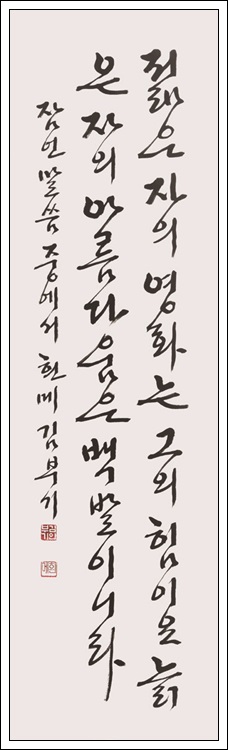 젊은 자의 영화는 그의 힘이요 늙
은 자의 아름다움은 백발이니라
잠언 말씀 중에서 한메 김부기